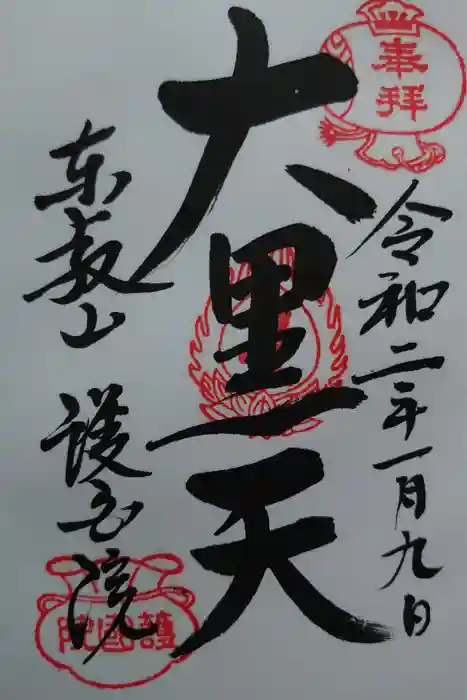 奉拝
令和二年一月九日
大黒天
东叡山
護国院
護國院